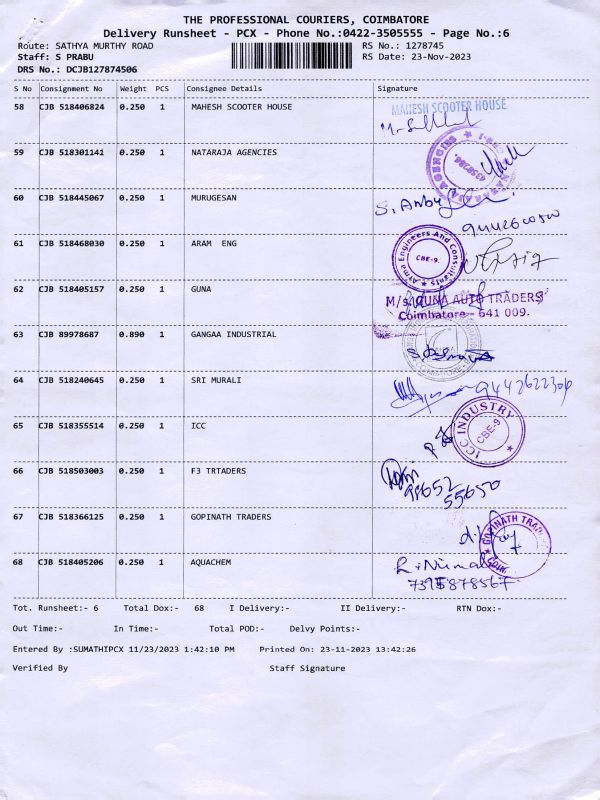 THE PROFESSIONAL COURIERS, COIMBATORE
Delivery Runsheet - PCX - Phone No.:0422-3505555 - Page No.:6
Route: SATHYA MURTHY ROAD RS No.: 1278745
Staff: S PRABU RS Date: 23-Nov-2023
DRS No.: DCJCB127874506
S No Consignment No Weight PCS Consignee Details Signature
58 CJB 518406824 0.250 1 MAHESH SCOOTER HOUSE MAHESH SCOOTER HOUSE
59 CJB 518301141 0.250 1 NATARAJA AGENCIES
60 CJB 518445067 0.250 1 MURUGESAN
61 CJB 518468030 0.250 1 ARAM ENG Engineers And Consultants CBE-9.
62 CJB 518405157 0.250 1 GUNA M/s.GUNA AUTO TRADERS
Coimbatore - 641 009.
63 CJB 89978687 0.890 1 GANGAA INDUSTRIAL
64 CJB 518240645 0.250 1 SRI MURALI 9442622306
65 CJB 518355514 0.250 1 ICC ICC INDUSTRY CBE-9
66 CJB 518503003 0.250 1 F3 TRTADERS 98652
55650
67 CJB 518366125 0.250 1 GOPINATH TRADERS GOPINATH
68 CJB 518405206 0.250 1 AQUACHEM
7395878567
Tot. Runsheet:- 6 Total Dox:- 68 I Delivery:- II Delivery:- RTN Dox:-
Out Time:- In Time:- Total POD:- Delvy Points:-
Entered By :SUMATHIPCX 11/23/2023 1:42:10 PM Printed On: 23-11-2023 13:42:26
Verified By Staff Signature